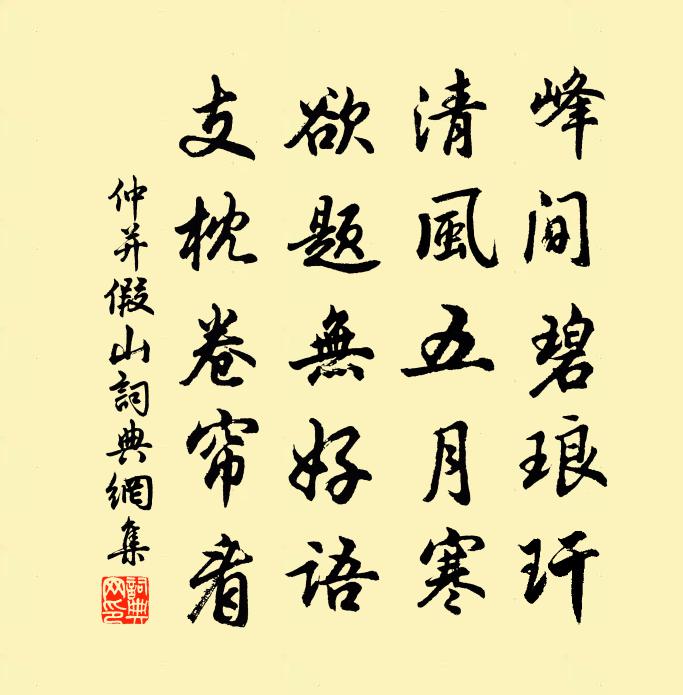 峰间碧琅玕
清風五月寒
欲题無好语
支枕卷帘看
仲并假山詞典網集
詞典网印